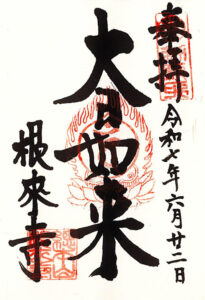 奉拝
令和七年六月廿二日
大日如来
根来寺